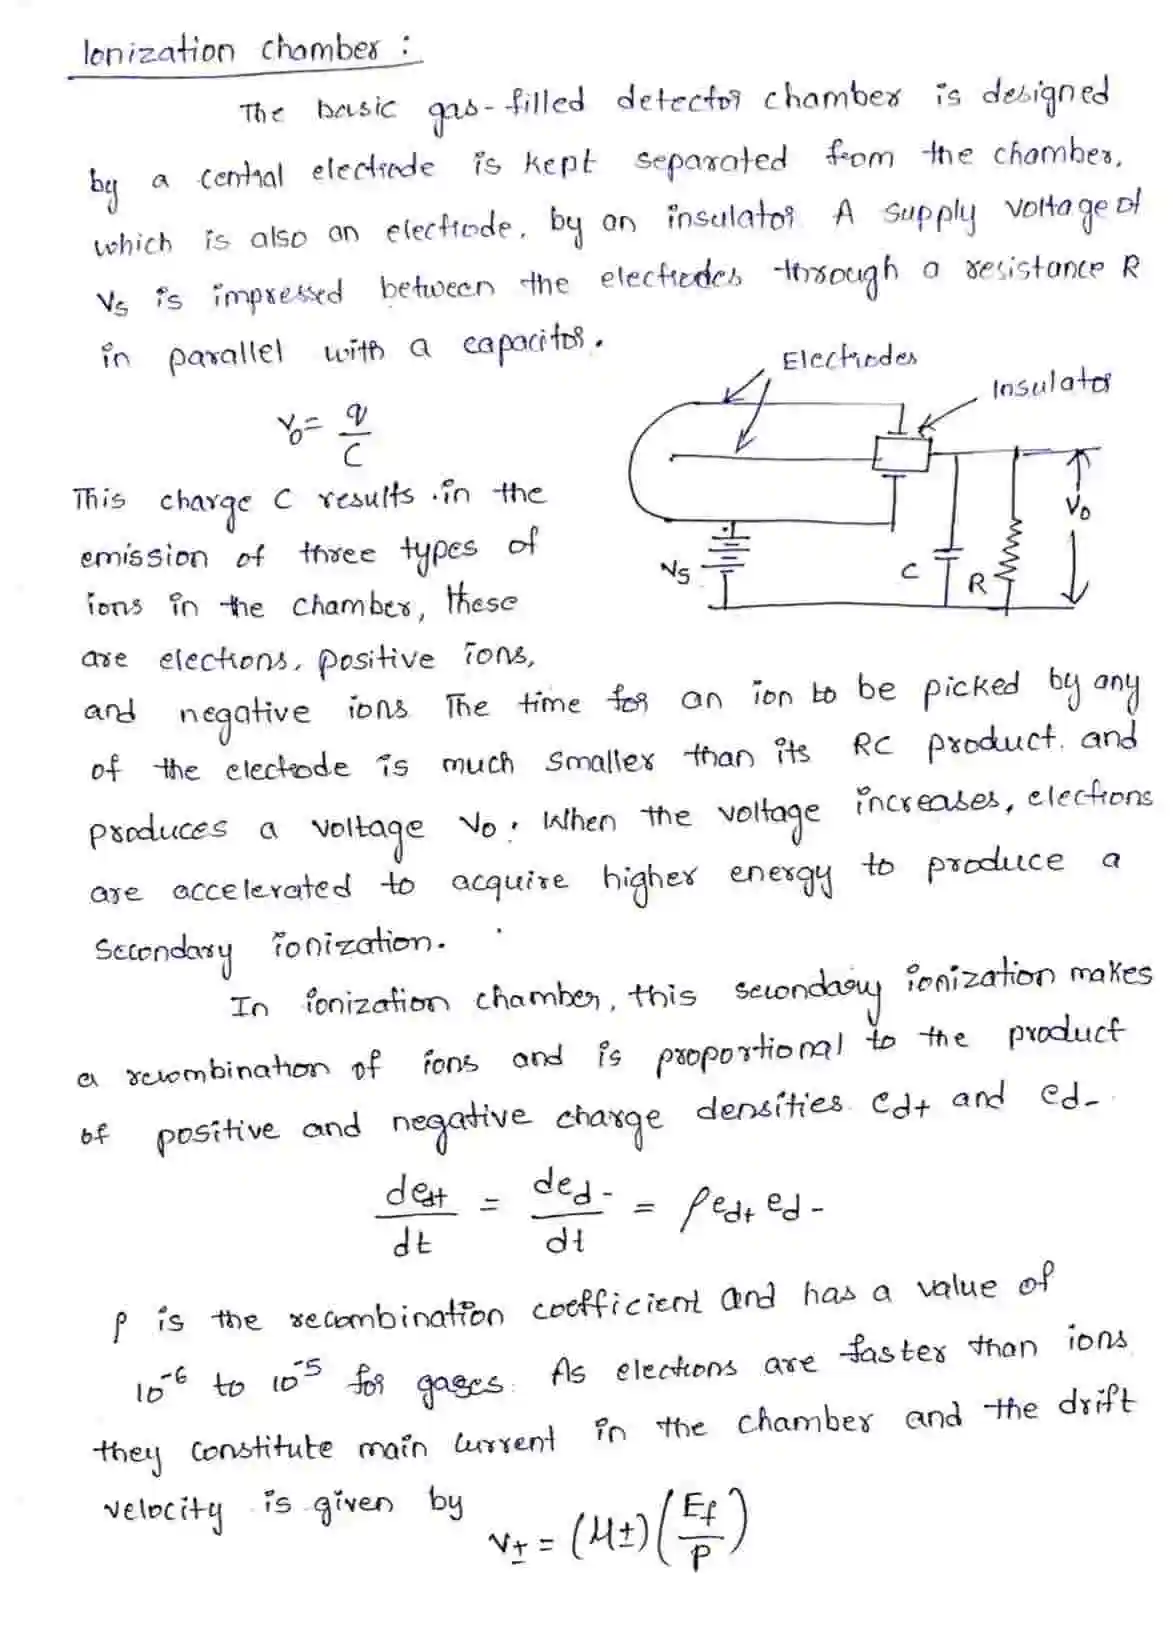 Ionization chamber :
The basic gas-filled detector chamber is designed
by a central electrode is kept separated from the chamber,
which is also an electrode, by an insulator A supply voltage of
Vs is impressed between the electrodes through a resistance R
in parallel with a capacitor.
Electrodes
Insulator
V₀ = q/C
This charge C results in the
emission of three types of
ions in the chamber, these
are electrons, positive ions,
Vs
C
R
V₀
and negative ions The time for an ion to be picked by any
of the electrode is much smaller than its RC product. and
produces a voltage V₀. When the voltage increases, electrons
are accelerated to acquire higher energy to produce a
Secondary ionization.
In ionization chamber, this secondary ionization makes
a recombination of ions and is proportional to the product
of positive and negative charge densities ed+ and ed-.
ded+/dt = ded-/dt = ρed+ ed-
ρ is the recombination coefficient and has a value of
10⁻⁶ to 10⁻⁵ for gases. As electrons are faster than ions
they constitute main current in the chamber and the drift
velocity is given by
V± = (μ±)(Ef/P)